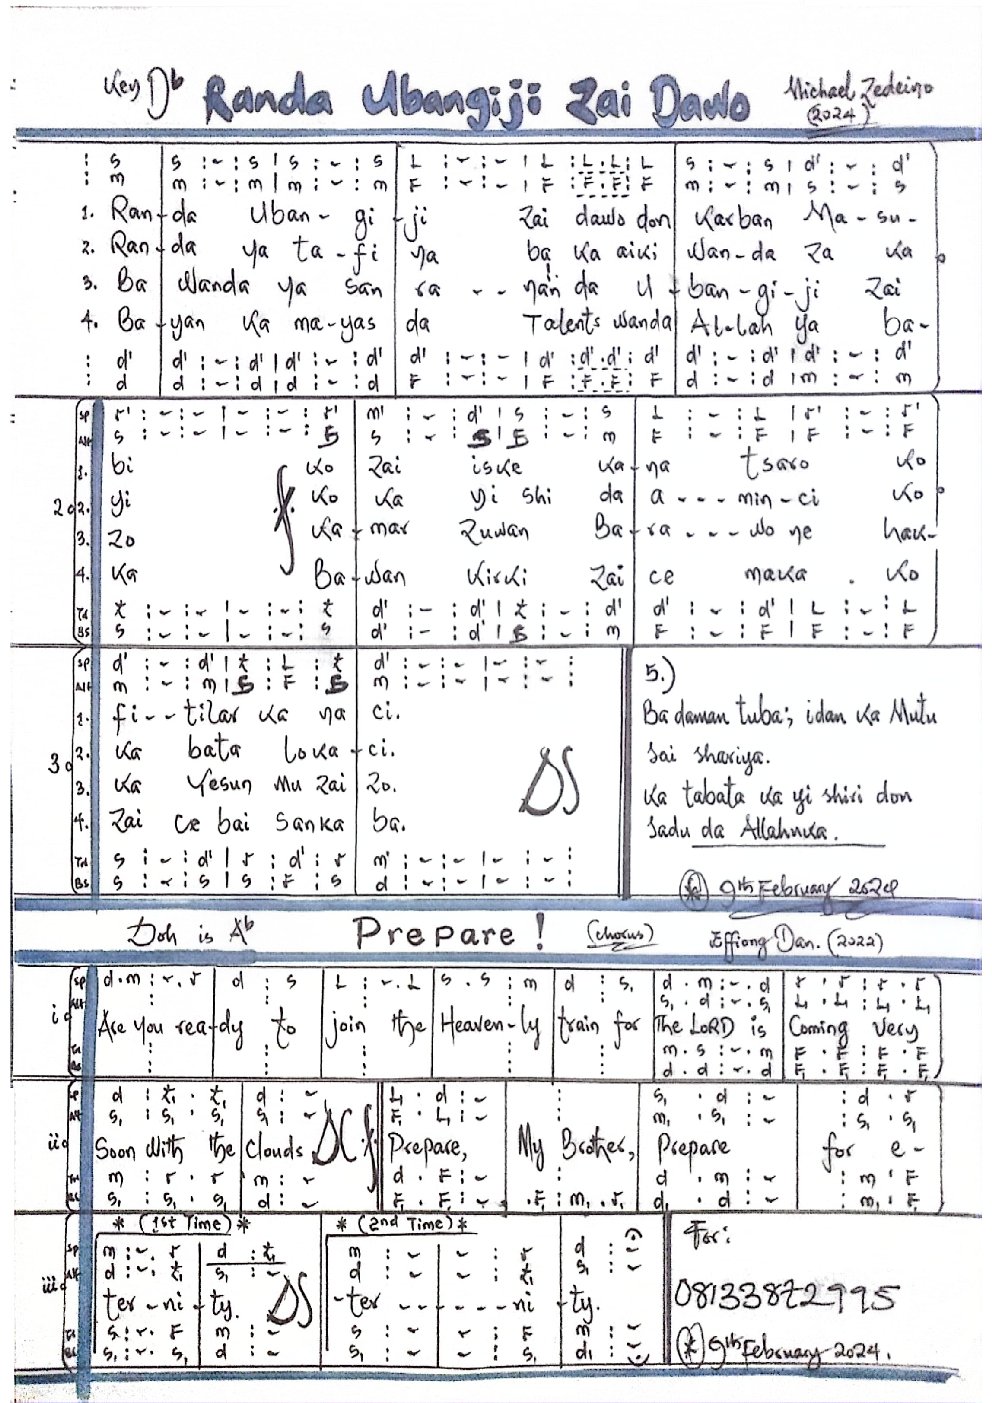 Key Db Randa Ubangiji Zai Dawo Michael Zedeino (2024)
: s | s : - : s | s : - : s | L : - : - | L : L . L : L | s : - : s | d' : - : d'
: m | m : - : m | m : - : m | F : - : - | F : F . F : F | m : - : m | s : - : s
1. Ran-da Uban-gi-ji Zai dawo don Karban Ma-su-
2. Ran-da ya ta-fi ya ba ka aiki Wan-da Za ka
3. Ba Wanda ya san ra -- nan da U-ban-gi-ji Zai
4. Ba-yan Ka ma-yas da Talents Wanda Al-lah ya ba-
: d' | d' : - : d' | d' : - : d' | d' : - : - | d' : d' . d' : d' | d' : - : d' | d' : - : d'
: d | d : - : d | d : - : d | F : - : - | F : F . F : F | d : - : d | m : - : m
2.
SP r' : - : - | - : - : r' | m' : - : d' | s : - : s | L : - : L | r' : - : r'
Alt s : - : - | - : - : s | s : - : s | s : - : m | F : - : F | F : - : F
1. bi Ko Zai iske Ka-na tsaro Ko
2. yi Ko Ka yi shi da a --- min-ci Ko
3. Zo Ka-mar Zuwan Ba-ra --- wo ne hak-
4. Ka Ba-Wan Kirki Zai ce maka . Ko
Tn t : - : - | - : - : t | d' : - : d' | t : - : d' | d' : - : d' | L : - : L
BS s : - : - | - : - : s | d' : - : d' | s : - : m | F : - : F | F : - : F
3.
SP d' : - : d' | t : L : t | d' : - : - | - : - :
Alt m : - : m | s : F : s | m : - : - | - : - :
1. fi -- tilar ka na ci.
2. Ka bata loka-ci.
3. Ka Yesun Mu Zai Zo.
4. Zai ce bai Sanka ba.
DS
Tn s : - : d' | r : d' : r | m' : - : - | - : - :
BS s : - : s | s : F : s | d : - : - | - : - :
5.)
Ba daman tuba; idan ka Mutu
Sai shariya.
Ka tabata ka yi shiri don
Sadu da Allahnka.
(*) 9th February 2024
Doh is Ab Prepare! (chorus) Effiong Dan. (2022)
i.
SP d . m : r . r | d : s | L : - . L | s . s : m | d : s, | d . m : - . d | r . r : r . r
Alt s, . d : - . s, | L, . L, : L, . L,
Are you rea-dy to join the Heaven-ly train for The LORD is Coming Very
Tn m . s : - . m | F . F : F . F
Bs d . d : - . d | F, . F, : F, . F,
ii.
SP d : t, . t, | d : - | L, . d : - | : | s, . d : - | : d . r
Alt s, : s, . s, | s, : - | F, . L, : - | m, . s, : - | : s, . s,
Soon With the Clouds DC Prepare, My Brother, Prepare for e-
Tn m : r . r | m : - | d . F : - | : | d . m : - | : m . F
BS s, : s, . s, | d : - | F, . F, : - | . F, : m, . r, | d, . d : - | : m, . F,
* (1st Time) * * (2nd Time) *
iii.
SP m : - . r | d : t, | m : - | - : r | d : -
Alt d : - . t, | s, : - | d : - | - : t, | s, : -
ter-ni-ty. DS -ter ------ni-ty.
Tn s : - . F | m : - | s : - | - : F | m : -
BS s, : - . s, | d : - | s, : - | - : s, | d, : -
For:
08133872995
(*) 9th February 2024.